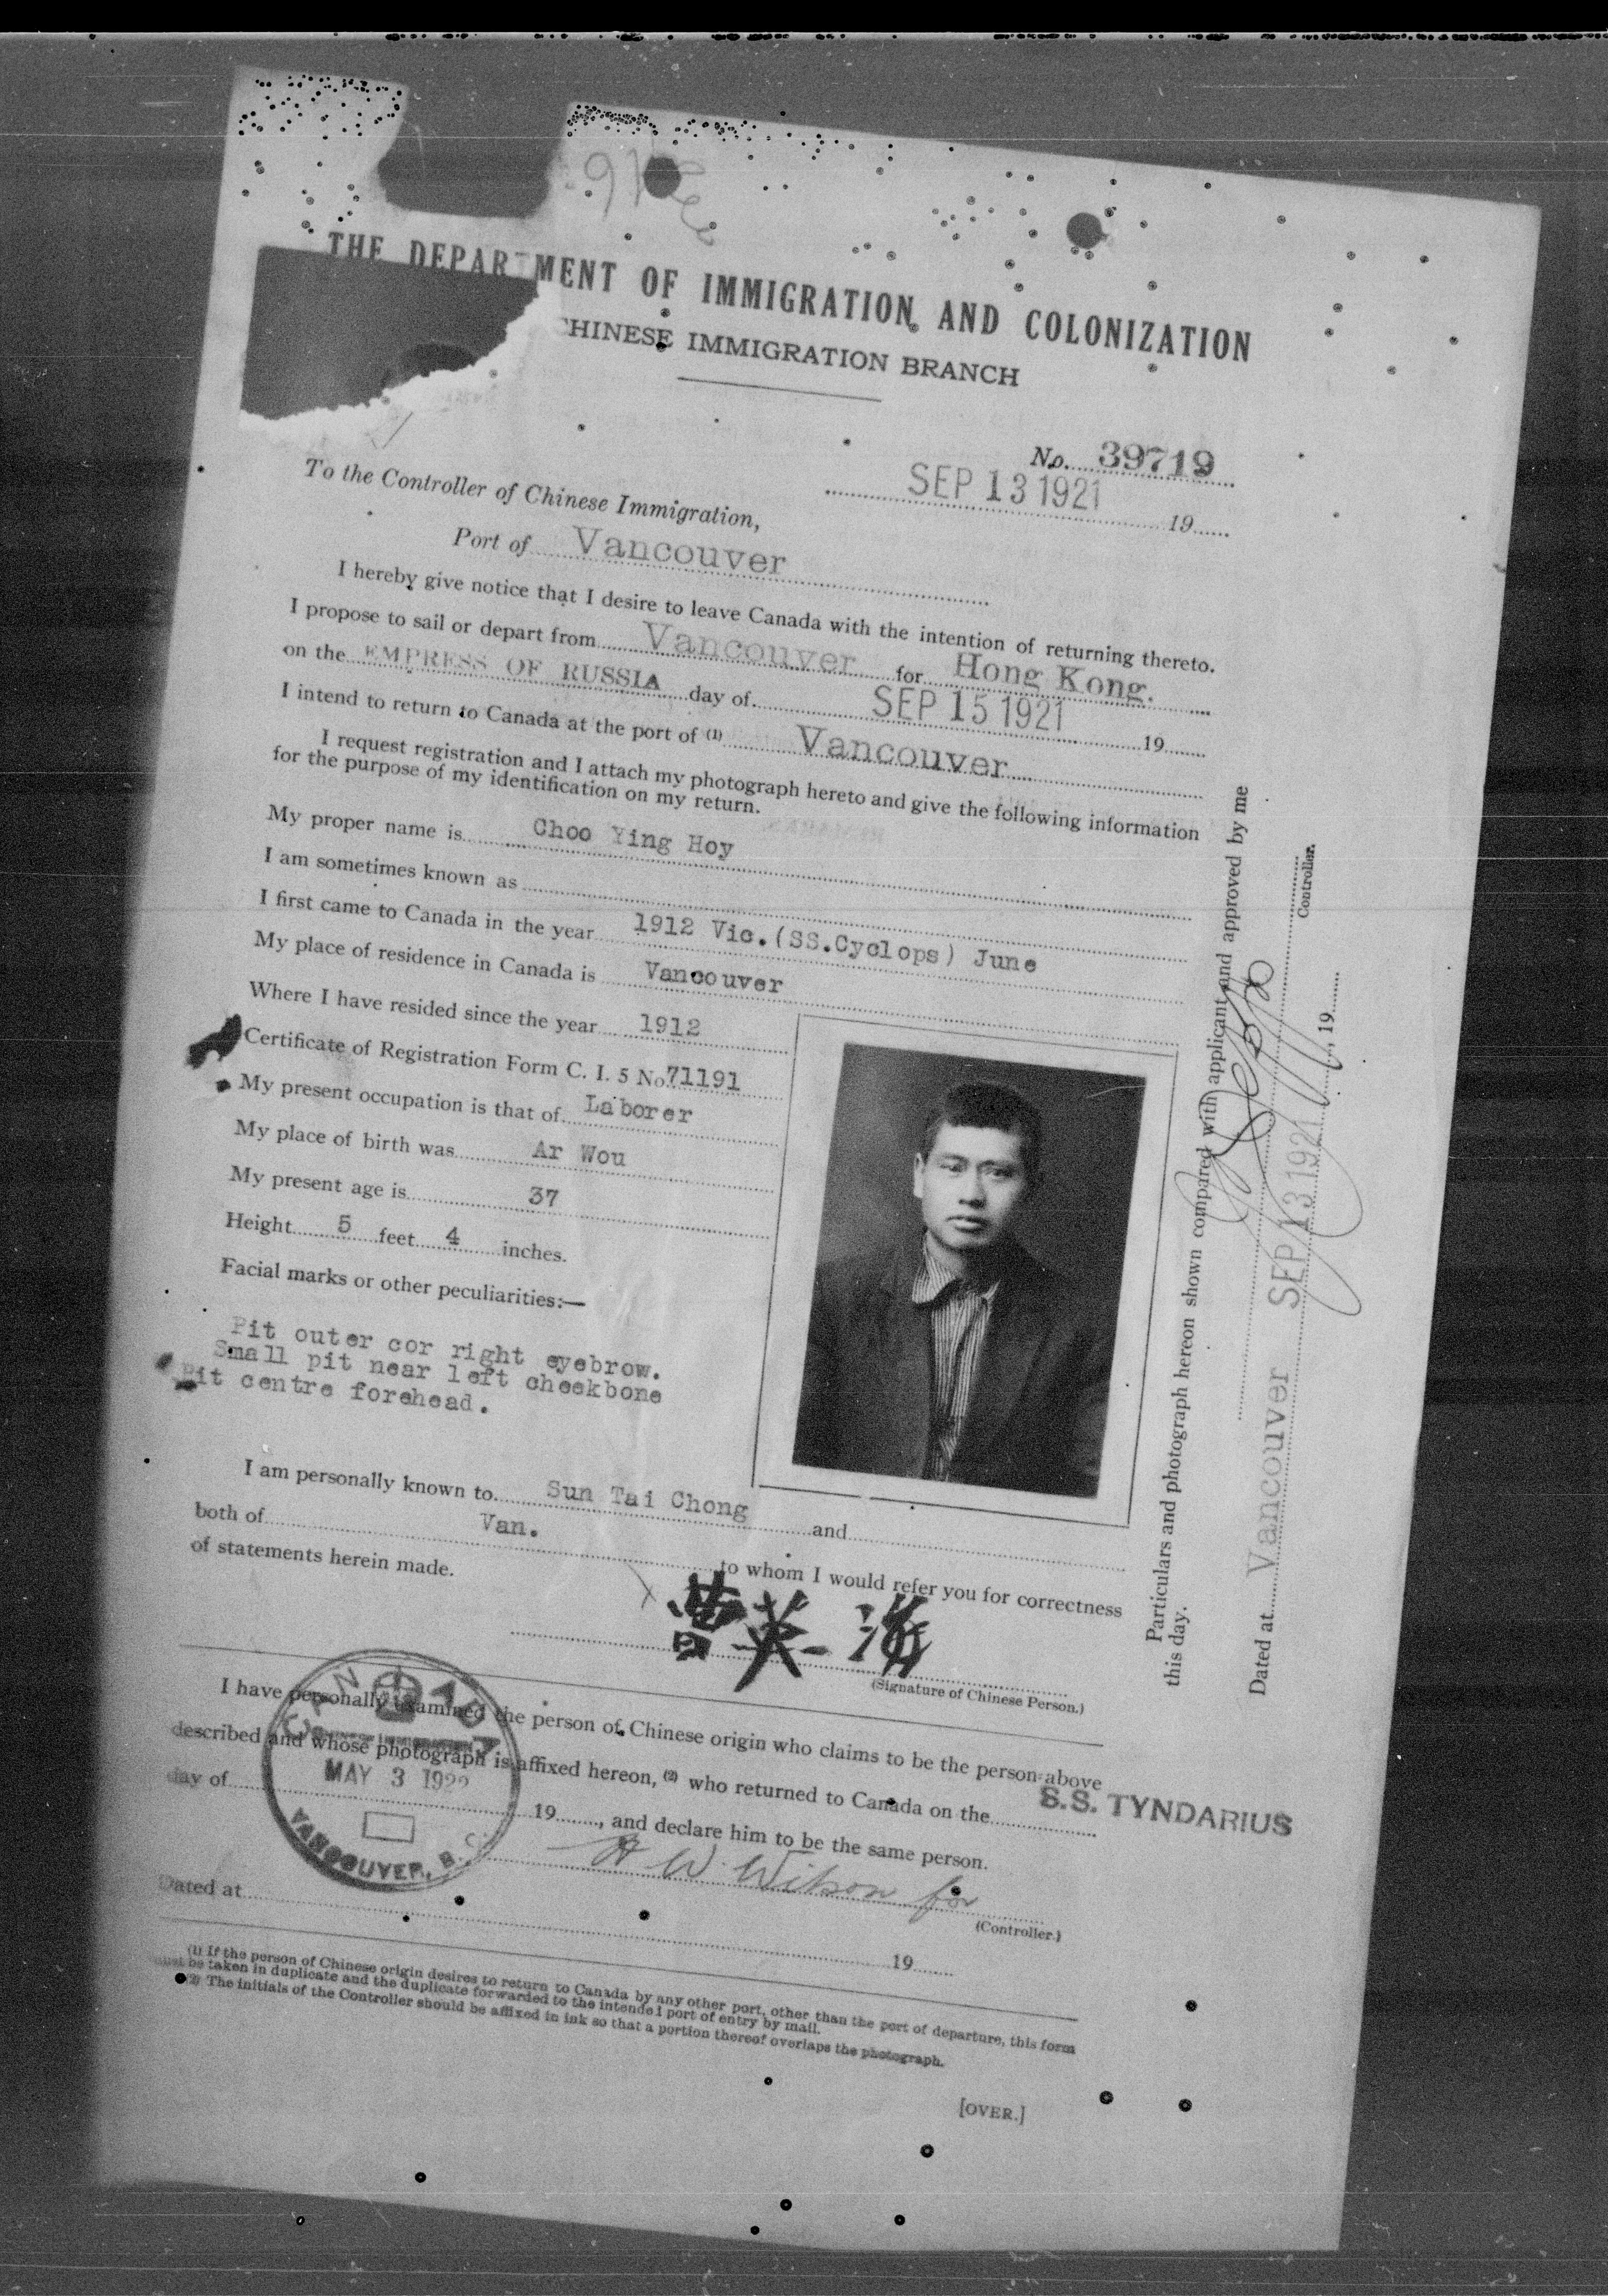 916
THE DEPARTMENT OF IMMIGRATION AND COLONIZATION
CHINESE IMMIGRATION BRANCH
No. 39719
SEP 13 1921 19
To the Controller of Chinese Immigration,
Port of Vancouver
I hereby give notice that I desire to leave Canada with the intention of returning thereto.
I propose to sail or depart from Vancouver for Hong Kong.
on the EMPRESS OF RUSSIA day of SEP 15 1921 19
I intend to return to Canada at the port of (1) Vancouver
I request registration and I attach my photograph hereto and give the following information
for the purpose of my identification on my return.
My proper name is Choo Ying Hoy
I am sometimes known as
I first came to Canada in the year 1912 Vic.(SS.Cyclops) June
My place of residence in Canada is Vancouver
Where I have resided since the year 1912
Certificate of Registration Form C. I. 5 No. 71191
My present occupation is that of Laborer
My place of birth was Ar Wou
My present age is 37
Height 5 feet 4 inches.
Facial marks or other peculiarities:—
Pit outer cor right eyebrow.
Small pit near left cheekbone
Pit centre forehead.
I am personally known to Sun Tai Chong and
both of Van. to whom I would refer you for correctness
of statements herein made.
(Signature of Chinese Person.)
Particulars and photograph hereon shown compared with applicant and approved by me
this day.
Controller.
Dated at Vancouver SEP 13 1921, 19
I have personally examined the person of Chinese origin who claims to be the person above
described and whose photograph is affixed hereon, (2) who returned to Canada on the S.S. TYNDARIUS
day of 19, and declare him to be the same person.
CANADA
MAY 3 1922
VANCOUVER, B. C.
H W Wilson for
(Controller.)
Dated at 19
(1) If the person of Chinese origin desires to return to Canada by any other port, other than the port of departure, this form
must be taken in duplicate and the duplicate forwarded to the intended port of entry by mail.
(2) The initials of the Controller should be affixed in ink so that a portion thereof overlaps the photograph.
[OVER.]